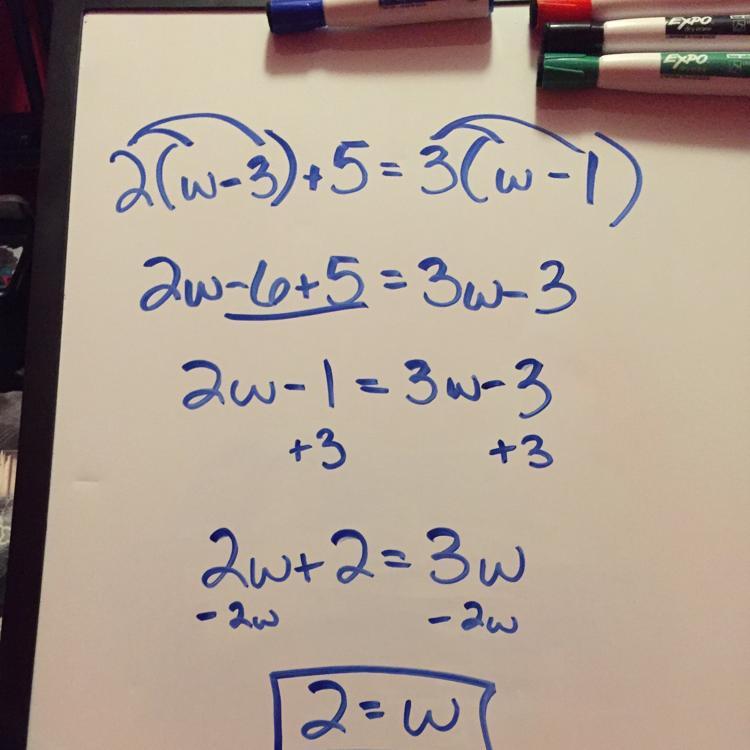 EXPO
EXPO
2(w-3)+5=3(w-1)
2w-6+5=3w-3
2w-1=3w-3
+3 +3
2w+2=3w
-2w -2w
2=w